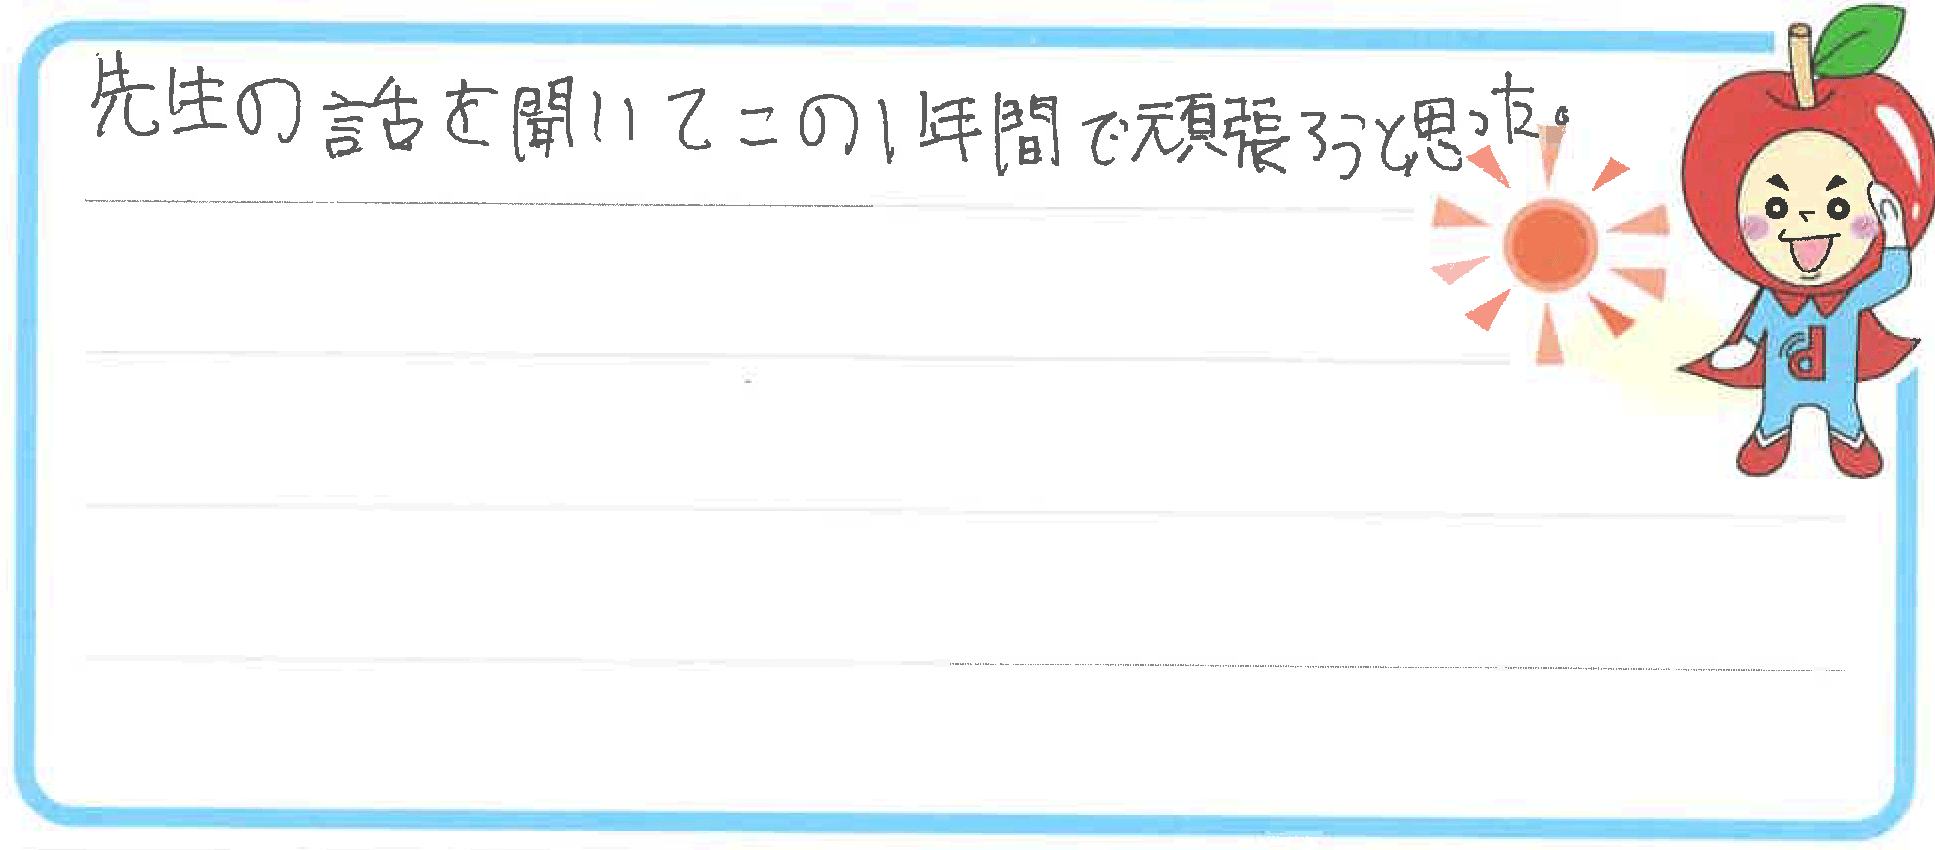 先生の話を聞いてこの1年間で頑張ろうと思った。
d